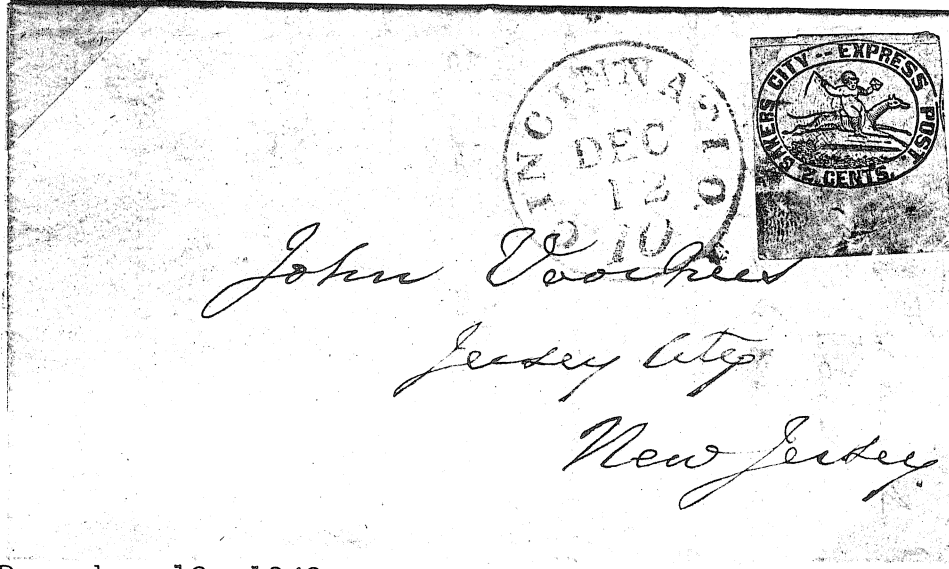 CINCINNATI O
DEC
12
10
BAKERS CITY - EXPRESS POST
2 CENTS.
John Voorhees
Jersey City
New Jersey